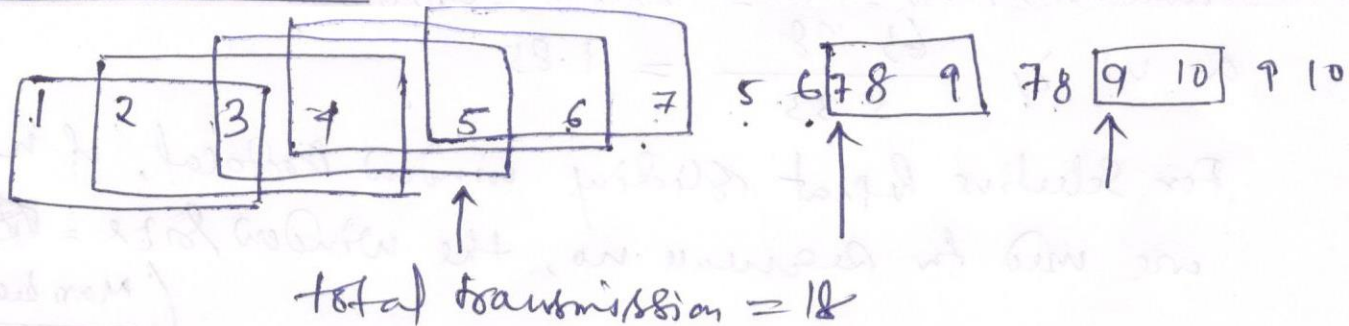 1 2 3 4 5 6 7 5 6 7 8 9 7 8 9 10 9 10
total transmission = 18